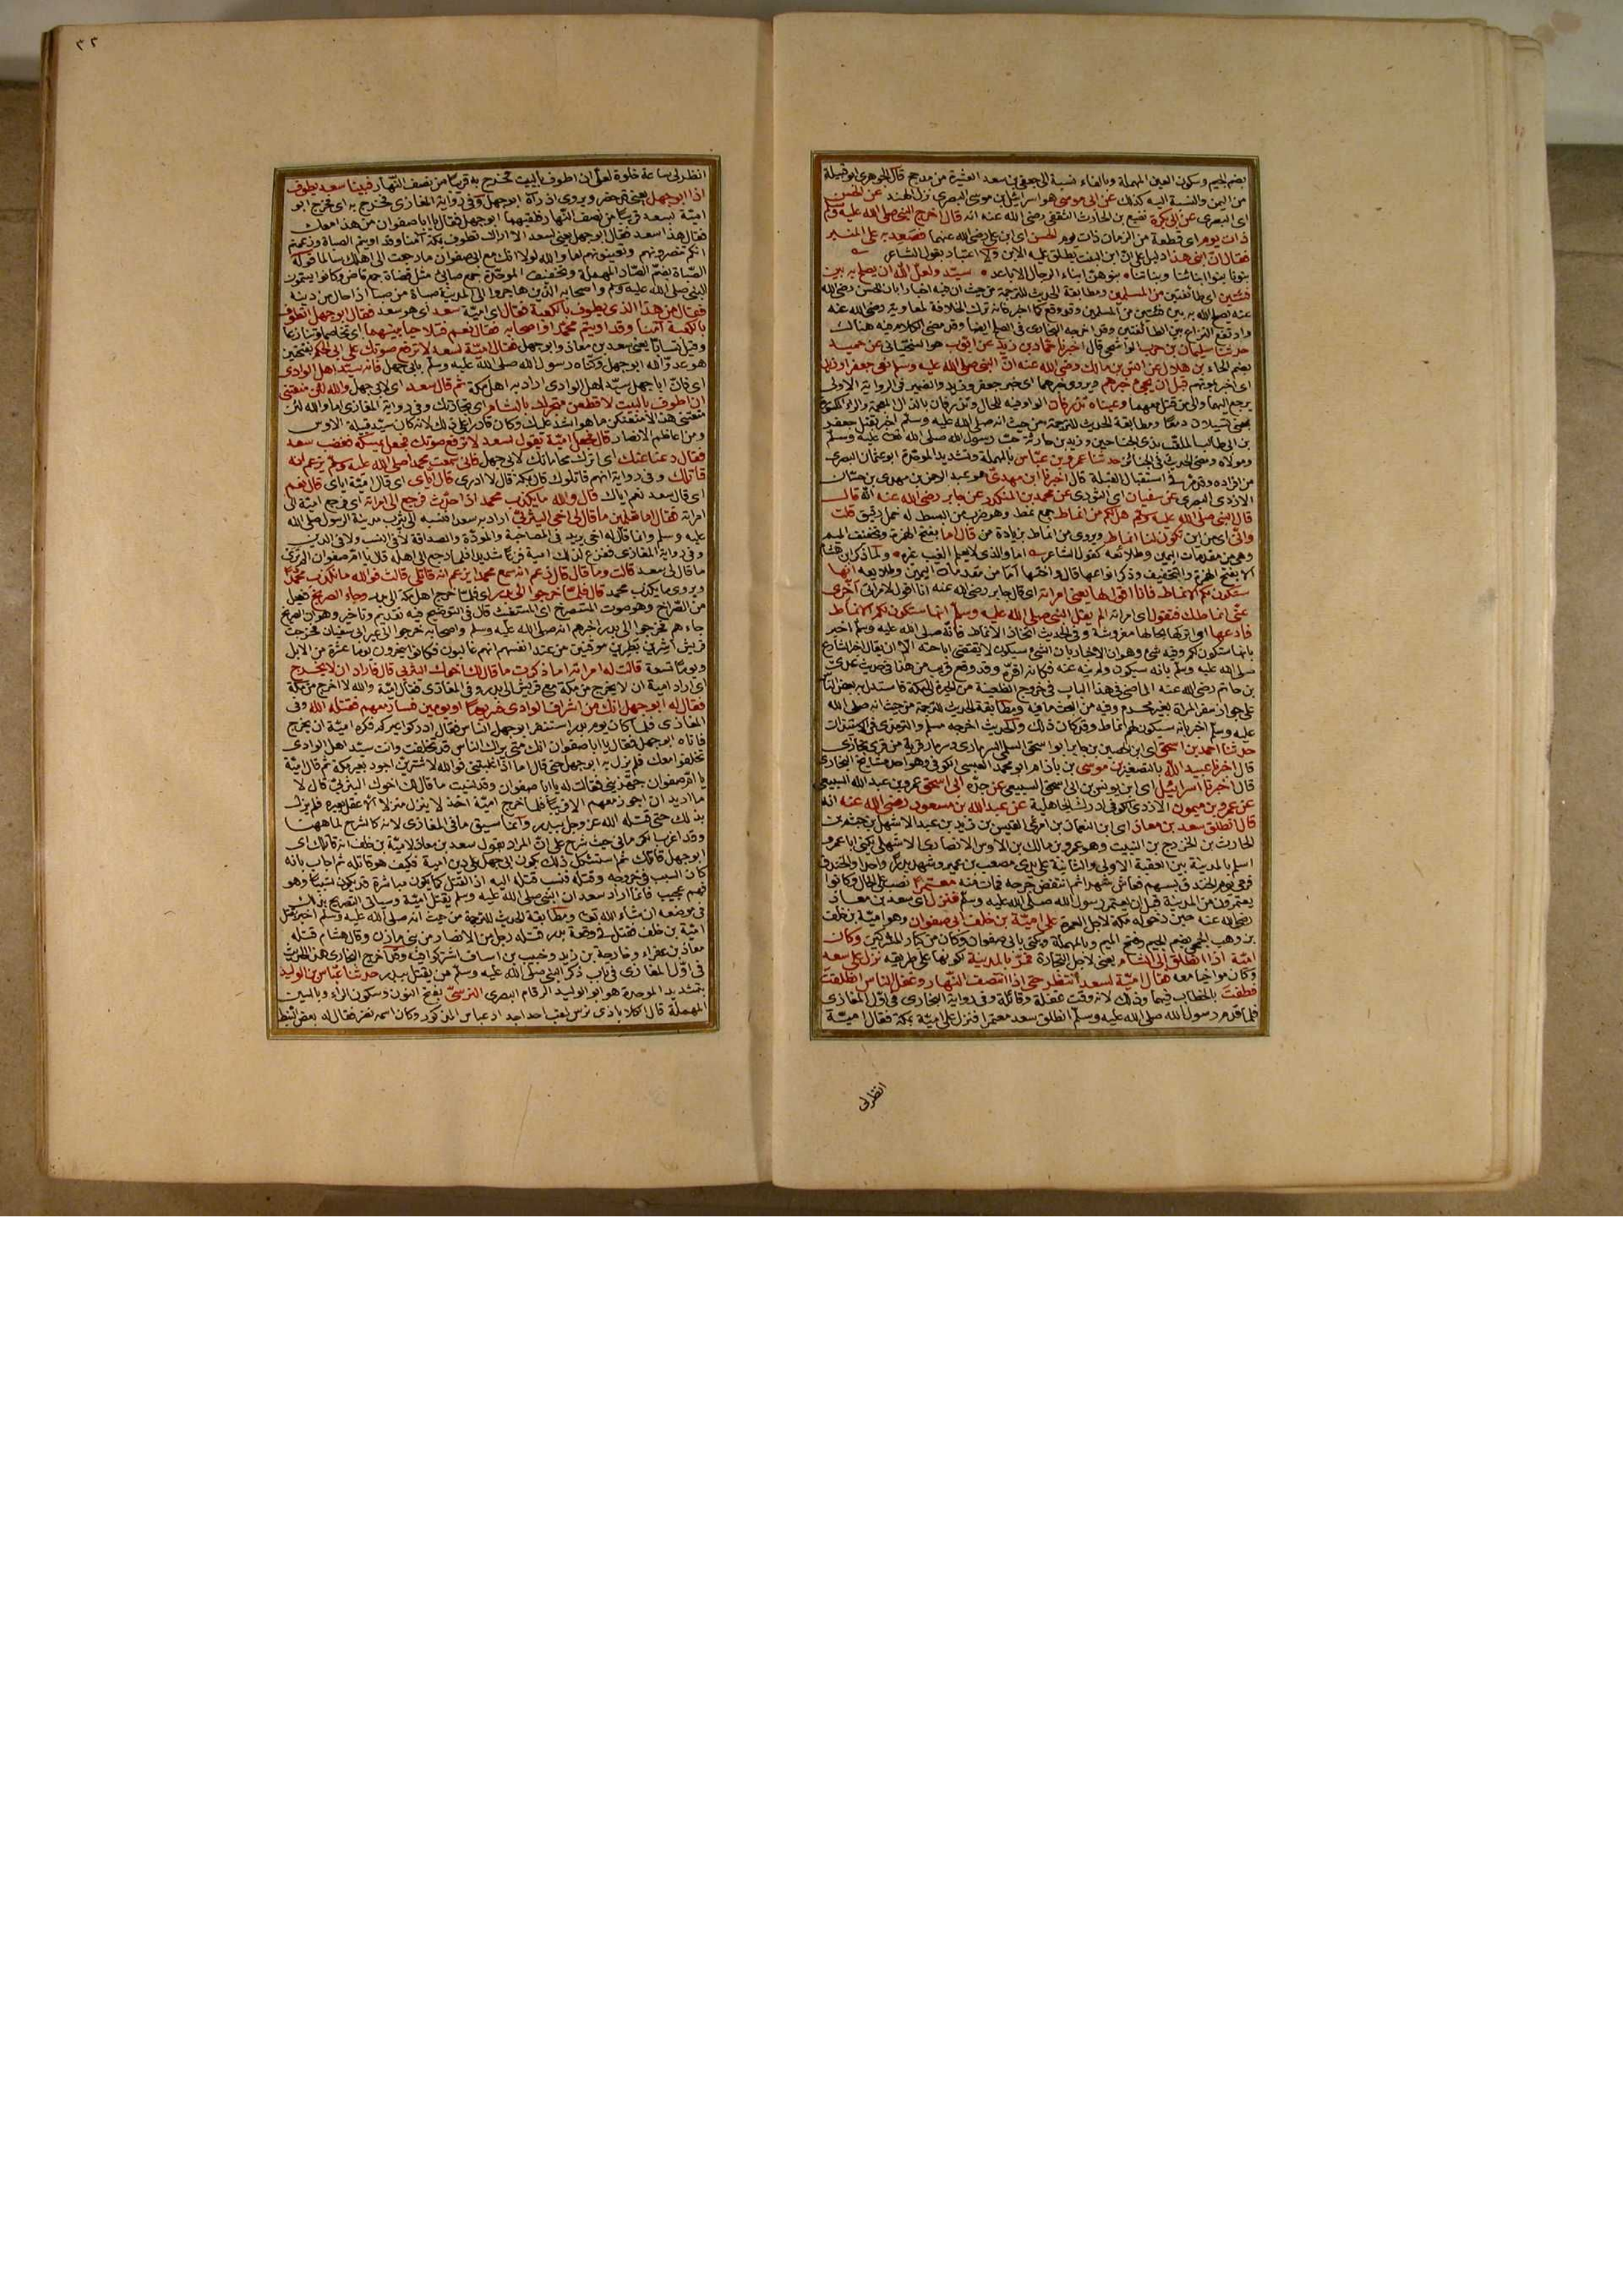 بضم الجيم وسكون العين المهملة وبالفاء نسبة الى جعفي بن سعد العشيرة من مدحج قال الجوهري ابو قبيلة
من اليمن والنسبة اليه كذلك عن ابى موسى هو اسرائيل بن موسى البصري نزل الهند عن الحسن
اى البصرى عن ابى بكرة نفيع بن الحارث الثقفي رضي الله عنه انه قال اخرج النبي صلى الله عليه وسلم
ذات يوم اى قطعة من الزمان ذات يوم الحسن اى ابن علي رضي الله عنهما فصعد به على المنبر
فقال ان ابنى هذا دليل على ان ابن البنت يطلق عليه الابن ولا اعتبار بقول الشاعر
بنونا بنوا ابنائنا وبناتنا بنوهن ابناء الرجال الاباعد سيد ولعل الله ان يصلح به بين
فئتين اى طائفتين من المسلمين ومطابقة الحديث للترجمة من حيث ان فيه اخبارا بان الحسن رضي الله
عنه يصلح الله به بين فئتين من المسلمين وقد وقع كما اخبر فانه ترك الخلافة لمعاوية رضي الله عنه
وارتفع النزاع بين الطائفتين وقد اخرجه البخارى فى الصلح ايضا وقد مضى الكلام فيه هنالك
حدثنا سليمان بن حرب الواشحي قال اخبرنا حماد بن زيد عن ايوب هو السختياني عن حميد
بضم الحاء بن هلال عن انس بن مالك رضي الله عنه ان النبي صلى الله عليه وسلم نعى جعفرا وزيدا
اى اخبر بموتهم قبل ان يجئ خبرهم ويروى خبرهما اى خبر جعفر وزيد والضمير فى الرواية الاولى
يرجع اليهما والى من قتل معهما وعيناه تذرفان الواو فيه للحال وتذرفان بالذال المعجمة والراء المكسورة
يعنى تسيلان دمعا ومطابقة الحديث للترجمة من حيث انه صلى الله عليه وسلم اخبر بقتل جعفر
بن ابى طالب الملقب بذى الجناحين وزيد بن حارثة حب رسول الله صلى الله تعالى عليه وسلم
ومولاه ومضى الحديث فى الجنائز حدثنا عمرو بن عباس بالمهملة وتشديد الموحدة ابو عثمان البصرى
من افراده وقد مر فى استقبال القبلة قال اخبرنا ابن مهدى هو عبد الرحمن بن مهدى بن حسان
الازدى البصرى عن سفيان اى الثورى عن محمد بن المنكدر عن جابر رضي الله عنه انه قال
قال النبي صلى الله عليه وسلم هل لكم من انماط جمع نمط وهو ضرب من البسط له خمل رقيق قلت
وانى اى من اين تكون لنا انماط ويروى من انماط بزيادة من قال اما بفتح الهمزة وتخفيف الميم
وهى من مقدمات اليمين وطلائعه كقول الشاعر اما والذى لا يعلم الغيب غيره ولما ذكر ابن هشام
الا بفتح الهمزة والتخفيف وذكر انواعها قال واختها اما من مقدمات اليمين وطلايعه انها
ستكون لكم الانماط فانا اقول لها يعنى امراته اى قال جابر رضي الله عنه انا اقول لامراتى اخرى
عنى انماطك فتقول اى امراته الم يقل النبي صلى الله عليه وسلم انها ستكون لكم الانماط
فادعها اى اتركها بحالها مفروشة وفى الحديث اتخاذ الانماط فانه صلى الله عليه وسلم اخبر
بانها ستكون لكم وفيه شئ وهو ان الاخبار بان الشئ سيكون لا يقتضى اباحته الا ان يقال اخبار الشارع
صلى الله عليه وسلم بانه سيكون ولم ينه عنه فكانه اقره وقد وقع قريب من هذا فى حديث عدى
بن حاتم رضي الله عنه الماضى فى هذا الباب فى خروج الظعينة من الحيرة الى مكة فاستدل به بعض الناس
على جواز سفر المراة بغير محرم وفيه من البحث ما فيه ومطابقة الحديث للترجمة من حيث انه صلى الله
عليه وسلم اخبر بانه سيكون لهم انماط وقد كان ذلك والحديث اخرجه مسلم والترمذى فى الاستيذان
حدثنا احمد بن اسحق اى ابن الحصين بن جابر ابو اسحق السلمى السرمارى وسرمار قرية من قرى بخارى
قال اخبرنا عبيد الله بالتصغير بن موسى بن باذام ابو محمد العبسى الكوفى وهو احد مشايخ البخارى
قال اخبرنا اسرائيل اى ابن يونس بن ابى اسحق السبيعى عن جده ابى اسحق عمرو بن عبد الله السبيعى
عن عمرو بن ميمون الازدى الكوفى ادرك الجاهلية عن عبد الله بن مسعود رضي الله عنه انه
قال انطلق سعد بن معاذ اى ابن النعمان بن امرئ القيس بن زيد بن عبد الاشهل بن جشم بن
الحارث بن الخزرج بن النبيت وهو عمرو بن مالك بن الاوس الانصارى الاشهلى يكنى ابا عمرو
اسلم بالمدينة بين العقبة الاولى والثانية على يدى مصعب بن عمير وشهد بدرا واحدا والخندق
فرمى يوم الخندق بسهم فعاش شهرا ثم انتقض جرحه فمات منه معتمرا نصب على الحال وكانوا
يعتمرون من المدينة قبل ان يعتمر رسول الله صلى الله عليه وسلم فنزل اى سعد بن معاذ
رضي الله عنه حين دخوله مكة لاجل العمرة على امية بن خلف ابى صفوان وهو امية بن خلف
بن وهب الجمحى بضم الجيم وفتح الميم وبالمهملة ويكنى بابى صفوان وكان من كبار المشركين وكان
امية اذا انطلق الى الشام يعنى لاجل التجارة فمر بالمدينة لكونها على طريقه نزل على سعد
وكان مواخيا معه فقال امية لسعد انتظر حتى اذا انتصف النهار وغفل الناس انطلقت
فطفت بالخطاب فيهما وذلك لانه وقت غفلة وقائلة وفى رواية البخارى فى اول المغازى
فلما قدم رسول الله صلى الله عليه وسلم انطلق سعد معتمرا فنزل على امية بمكة فقال امية
انظر لى
٣٣
انظر لى ساعة خلوة لعلى ان اطوف بالبيت فخرج به قريبا من نصف النهار فبينا سعد يطوف
اذا ابو جهل يعنى قد حضر ويروى اذ رآه ابو جهل وفى رواية المغازى فخرج به اى فخرج ابو
امية بسعد قريبا من نصف النهار فلقيهما ابو جهل فقال يا ابا صفوان من هذا معك
فقال هذا سعد فقال ابو جهل يعنى لسعد الا اراك تطوف بمكة آمنا وقد اويتم الصباة وزعمتم
انكم تنصرونهم وتعينونهم اما والله لولا انك مع ابى صفوان ما رجعت الى اهلك سالما قوله
الصباة بضم الصاد المهملة وتخفيف الموحدة جمع صابئ مثل قضاة جمع قاض وكانوا يسمون
النبي صلى الله عليه وسلم واصحابه الذين هاجروا الى المدينة صباة من صبا اذا مال من دينه
فقال من هذا الذى يطوف بالكعبة فقال اى امية سعد اى هو سعد فقال ابو جهل اتطوف
بالكعبة آمنا وقد اويتم محمدا واصحابه فقال نعم فتلاحيا بينهما اى تخاصما وتنازعا
وقيل تسابا يعنى سعد بن معاذ وابو جهل فقال امية لسعد لا ترفع صوتك على ابى الحكم بفتحتين
هو عدو الله ابو جهل وكناه رسول الله صلى الله عليه وسلم بابى جهل فانه سيد اهل الوادى
اى فان ابا جهل سيد اهل الوادى اراد به اهل مكة ثم قال سعد اى لابى جهل والله لئن منعتنى
ان اطوف بالبيت لاقطعن متجرك بالشام اى تجارتك وفى رواية المغازى اما والله لئن
منعتنى هذا لامنعنك ما هو اشد عليك وكان قادرا على ذلك لانه كان سيد قبيلة الاوس
ومن اعاظم الانصار قال فجعل امية يقول لسعد لا ترفع صوتك فجعل يمسكه فغضب سعد
فقال دعنا عنك اى اترك محاماتك لابى جهل فانى سمعت محمدا صلى الله عليه وسلم يزعم انه
قاتلك وفى رواية انهم قاتلوك قال بمكة قال لا ادرى قال اياى اى قال امية اياى قال نعم
اى قال سعد نعم اياك قال والله ما يكذب محمد اذا حدث فرجع الى امراته اى فرجع امية الى
امراته فقال اما تعلمين ما قال لى اخى اليثربى اراد به سعدا نسبه الى يثرب مدينة الرسول صلى الله
عليه وسلم وانما قال له اخى يريد فى المصاحبة والمودة والصداقة لا فى النسب ولا فى الدين
وفى رواية المغازى ففزع لذلك امية فزعا شديدا فلما رجع الى اهله قال يا ام صفوان الم ترى
ما قال لى سعد قالت وما قال قال زعم انه سمع محمدا يزعم انه قاتلى قالت فوالله ما يكذب محمد
ويروى ما يكذب محمد قال فلما خرجوا الى بدر اى فلما خرج اهل مكة الى بدر وجاء الصريخ فعيل
من الصراخ وهو صوت المستصرخ اى المستغيث قال فى التوضيح فيه تقديم وتاخير وهو ان الصريخ
جاءهم فخرجوا الى بدر اخبرهم انه صلى الله عليه وسلم واصحابه خرجوا الى عير ابى سفيان فخرجت
قريش اشرين بطرين موقنين من عند انفسهم انهم غالبون فكانوا ينحرون يوما عشرة من الابل
ويوما تسعة قالت له امراته اما ذكرت ما قال لك اخوك اليثربى قال فاراد ان لا يخرج
اى اراد امية ان لا يخرج من مكة مع قريش الى بدر وفى المغازى فقال امية والله لا اخرج من مكة
فقال له ابو جهل انك من اشراف الوادى فسر يوما او يومين فسار معهم فقتله الله وفى
المغازى فلما كان يوم بدر استنفر ابو جهل الناس فقال ادركوا عيركم فكره امية ان يخرج
فاتاه ابو جهل فقال يا ابا صفوان انك متى يراك الناس قد تخلفت وانت سيد اهل الوادى
تخلفوا معك فلم يزل به ابو جهل حتى قال اما اذا غلبتنى فوالله لاشترين اجود بعير بمكة ثم قال امية
يا ام صفوان جهزينى فقالت له يا ابا صفوان وقد نسيت ما قال لك اخوك اليثربى قال لا
ما اريد ان اجوز معهم الا قريبا فلما خرج امية اخذ لا ينزل منزلا الا عقل بعيره فلم يزل
بذلك حتى قتله الله عز وجل ببدر وانما سيق ما فى المغازى لانه كالشرح لما ههنا
وقد اغرب الكرمانى حيث شرح على ان المراد بقول سعد بن معاذ لامية بن خلف انه قاتلك اى
ابو جهل قاتلك ثم استشكل ذلك بكون ابى جهل على دين امية فكيف هو قاتله ثم اجاب بانه
كان السبب فى خروجه وقتله فنسب قتله اليه اذ القتل كما يكون مباشرة قد يكون تسببا وهو
فهم عجيب فانما اراد سعد ان النبي صلى الله عليه وسلم يقتل امية وسياتى التصريح بذلك
فى موضعه ان شاء الله تعالى ومطابقة الحديث للترجمة من حيث انه صلى الله عليه وسلم اخبر بقتل
امية بن خلف فقتل فى وقعة بدر قتله رجل من الانصار من بنى مازن وقال هشام قتله
معاذ بن عفراء وخارجة بن زيد وخبيب بن اساف اشتركوا فيه وقد اخرج البخارى هذا الحديث
فى اول المغازى فى باب ذكر النبي صلى الله عليه وسلم من يقتل ببدر حدثنا عباس بن الوليد
بتشديد الموحدة هو ابو الوليد الرقام البصرى النرسى بفتح النون وسكون الراء وبالسين
المهملة قال الكلاباذى نرس لقب احد اجداد عباس المذكور وكان اسمه نصر فقال له بعض النبط